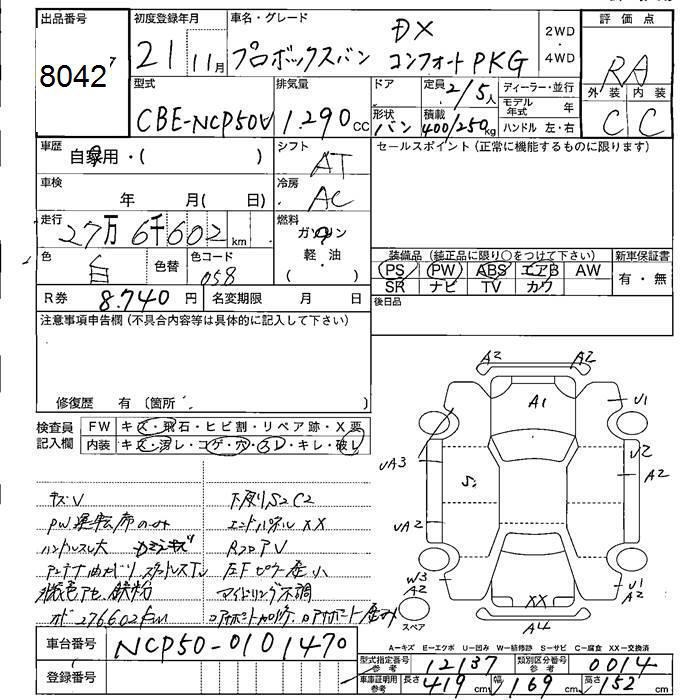 出品番号 初度登録年月 車名・グレード 評価点
8042 7 21 11月 プロボックスバン DX コンフォートPKG 2WD・4WD RA
型式 排気量 ドア 定員 2/5人 ディーラー・並行 外装 内装
CBE-NCP50V 1.290cc 形状 バン 積載 400/250kg モデル年式 年 C C
ハンドル 左・右
車歴 自家用・( ) シフト AT セールスポイント(正常に機能するものに限ります)
車検 年 月( 日) 冷房 AC
走行 27万6千602km 燃料 ガソリン
色 白 色替 色コード 058 軽・油 ( )
装備品(純正品に限り○をつけて下さい) 新車保証書
PS PW ABS エアB AW 有・無
SR ナビ TV カワ
R券 8.740円 名変期限 月 日 後日品
注意事項申告欄(不具合内容等は具体的に記入して下さい)
修復歴 有(箇所 )
検査員記入欄 FW キズ・飛石・ヒビ割・リペア跡・X要
内装 キズ・汚レ・コゲ・穴・スレ・キレ・破レ
キズV 下廻りS2C2
PW運転席のみ エンドパネルXX
ハンドルスレ大
アイドリング不調
276602km
A2 A2
A1 U1
UA3 S. U2 A2
UA2
W3 A2 XX U1 A2
スペア A4
車台番号 NCP50-0101470
登録番号
A-キズ E-エクボ U-凹み W-補修跡 S-サビ C-腐食 XX-交換済
型式指定番号 参考 12137 類別区分番号 参考 0014
車庫証明用 参考 長さ 419cm 幅 169cm 高さ 152cm